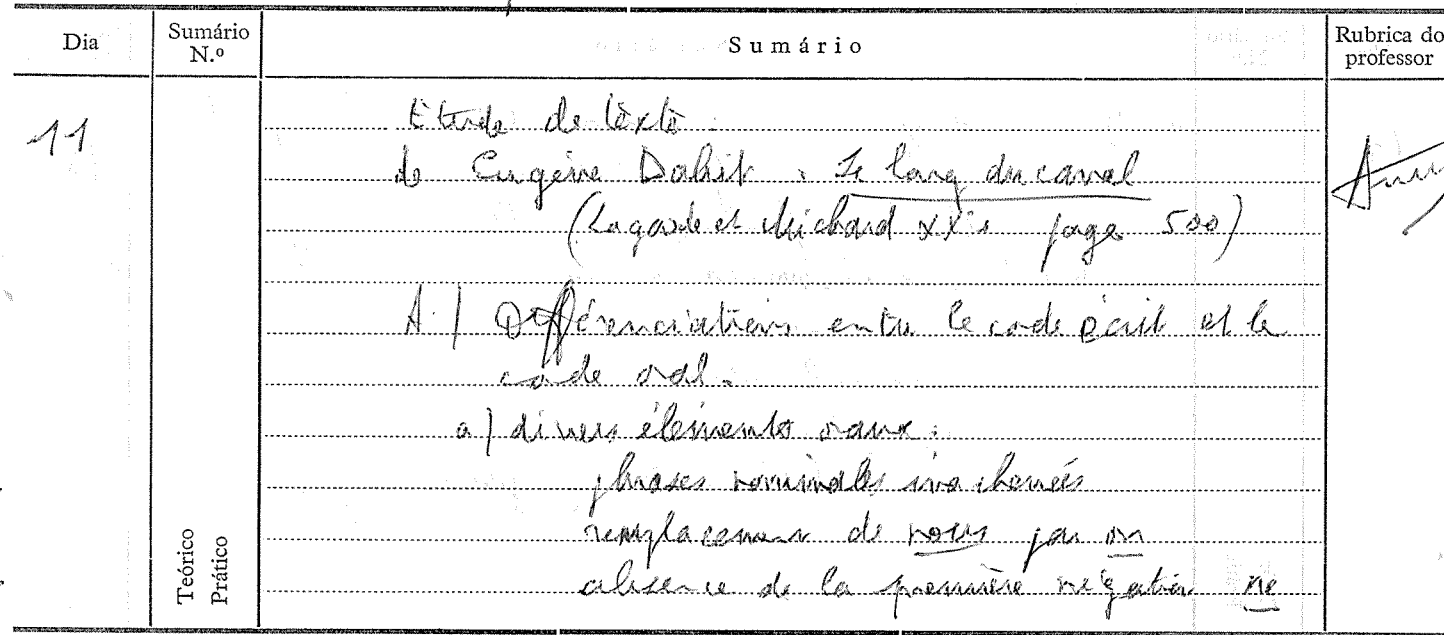 Dia
Sumário N.º
Sumário
Rubrica do professor
11
Étude de texte
de Eugène Dabit : Le long du canal
(Lagarde et Michard XXe page 500)
A. / Différenciations entre le code écrit et le
code oral.
a) divers éléments oraux :
phrases nominales inachevées
remplacement de nous par on
absence de la première négation ne
Teórico
Prático